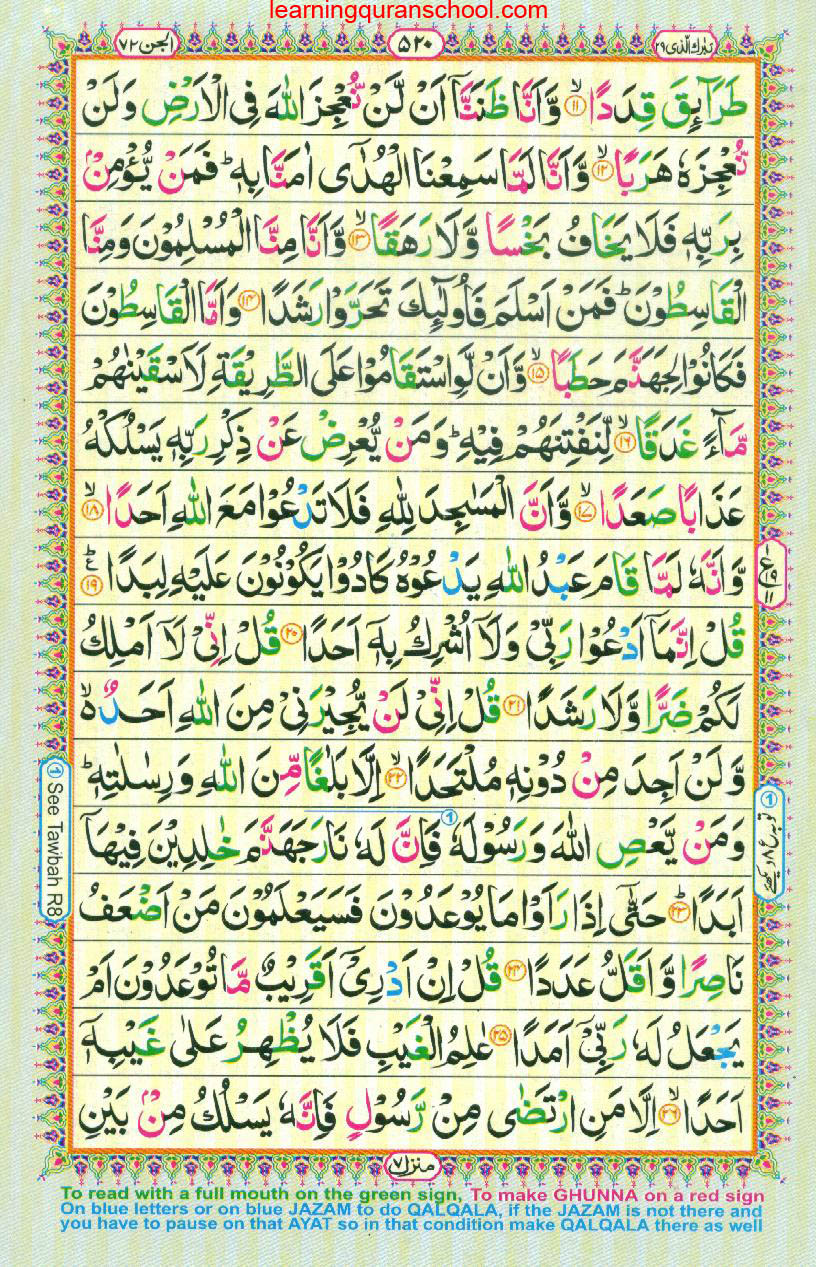 learningquranschool.com
تبٰرك الّذى ٢٩ ۵۲۰ الجن ٧٢
طَرَآئِقَ قِدَدًا ۙ‏﴿۱۱﴾ وَّاَنَّا ظَنَنَّاۤ اَنْ لَّنْ نُّعْجِزَ اللّٰهَ فِى الْاَرْضِ وَلَنْ
نُّعْجِزَهٗ هَرَبًا ۙ‏﴿۱۲﴾ وَّاَنَّا لَمَّا سَمِعْنَا الْهُدٰٓى اٰمَنَّا بِهٖ ؕ فَمَنْ يُّؤْمِنْۢ
بِرَبِّهٖ فَلَا يَخَافُ بَخْسًا وَّلَا رَهَقًا ۙ‏﴿۱۳﴾ وَّاَنَّا مِنَّا الْمُسْلِمُوْنَ وَمِنَّا
الْقَاسِطُوْنَ ؕ فَمَنْ اَسْلَمَ فَاُولٰٓئِكَ تَحَرَّوْا رَشَدًا ﴿۱۴﴾ وَاَمَّا الْقَاسِطُوْنَ
فَكَانُوْا لِجَهَنَّمَ حَطَبًا ۙ‏﴿۱۵﴾ وَّاَنْ لَّوِاسْتَقَامُوْا عَلَى الطَّرِيْقَةِ لَاَسْقَيْنٰهُمْ
مَّآءً غَدَقًا ۙ‏﴿۱۶﴾ لِّنَفْتِنَهُمْ فِيْهِ ؕ وَمَنْ يُّعْرِضْ عَنْ ذِكْرِ رَبِّهٖ يَسْلُكْهُ
عَذَابًا صَعَدًا ۙ‏﴿۱۷﴾ وَّاَنَّ الْمَسٰجِدَ لِلّٰهِ فَلَا تَدْعُوْا مَعَ اللّٰهِ اَحَدًا ۙ‏﴿۱۸﴾
وَّاَنَّهٗ لَمَّا قَامَ عَبْدُ اللّٰهِ يَدْعُوْهُ كَادُوْا يَكُوْنُوْنَ عَلَيْهِ لِبَدًا ؕ ﴿۱۹﴾ ع
قُلْ اِنَّمَاۤ اَدْعُوْا رَبِّىْ وَلَاۤ اُشْرِكُ بِهٖۤ اَحَدًا ﴿۲۰﴾ قُلْ اِنِّىْ لَاۤ اَمْلِكُ
لَكُمْ ضَرًّا وَّلَا رَشَدًا ﴿۲۱﴾ قُلْ اِنِّىْ لَنْ يُّجِيْرَنِىْ مِنَ اللّٰهِ اَحَدٌ ۙ۬
وَّلَنْ اَجِدَ مِنْ دُوْنِهٖ مُلْتَحَدًا ۙ‏﴿۲۲﴾ اِلَّا بَلٰغًا مِّنَ اللّٰهِ وَرِسٰلٰتِهٖ ؕ
وَمَنْ يَّعْصِ اللّٰهَ وَرَسُوْلَهٗ ① فَاِنَّ لَهٗ نَارَ جَهَنَّمَ خٰلِدِيْنَ فِيْهَاۤ
اَبَدًا ؕ‏﴿۲۳﴾ حَتّٰٓى اِذَا رَاَوْا مَا يُوْعَدُوْنَ فَسَيَعْلَمُوْنَ مَنْ اَضْعَفُ
نَاصِرًا وَّاَقَلُّ عَدَدًا ﴿۲۴﴾ قُلْ اِنْ اَدْرِىْۤ اَقَرِيْبٌ مَّا تُوْعَدُوْنَ اَمْ
يَجْعَلُ لَهٗ رَبِّىْۤ اَمَدًا ﴿۲۵﴾ عٰلِمُ الْغَيْبِ فَلَا يُظْهِرُ عَلٰى غَيْبِهٖۤ
اَحَدًا ۙ‏﴿۲۶﴾ اِلَّا مَنِ ارْتَضٰى مِنْ رَّسُوْلٍ فَاِنَّهٗ يَسْلُكُ مِنْۢ بَيْنِ
① See Tawbah R8
منزل ٧
To read with a full mouth on the green sign, To make GHUNNA on a red sign
On blue letters or on blue JAZAM to do QALQALA, if the JAZAM is not there and
you have to pause on that AYAT so in that condition make QALQALA there as well